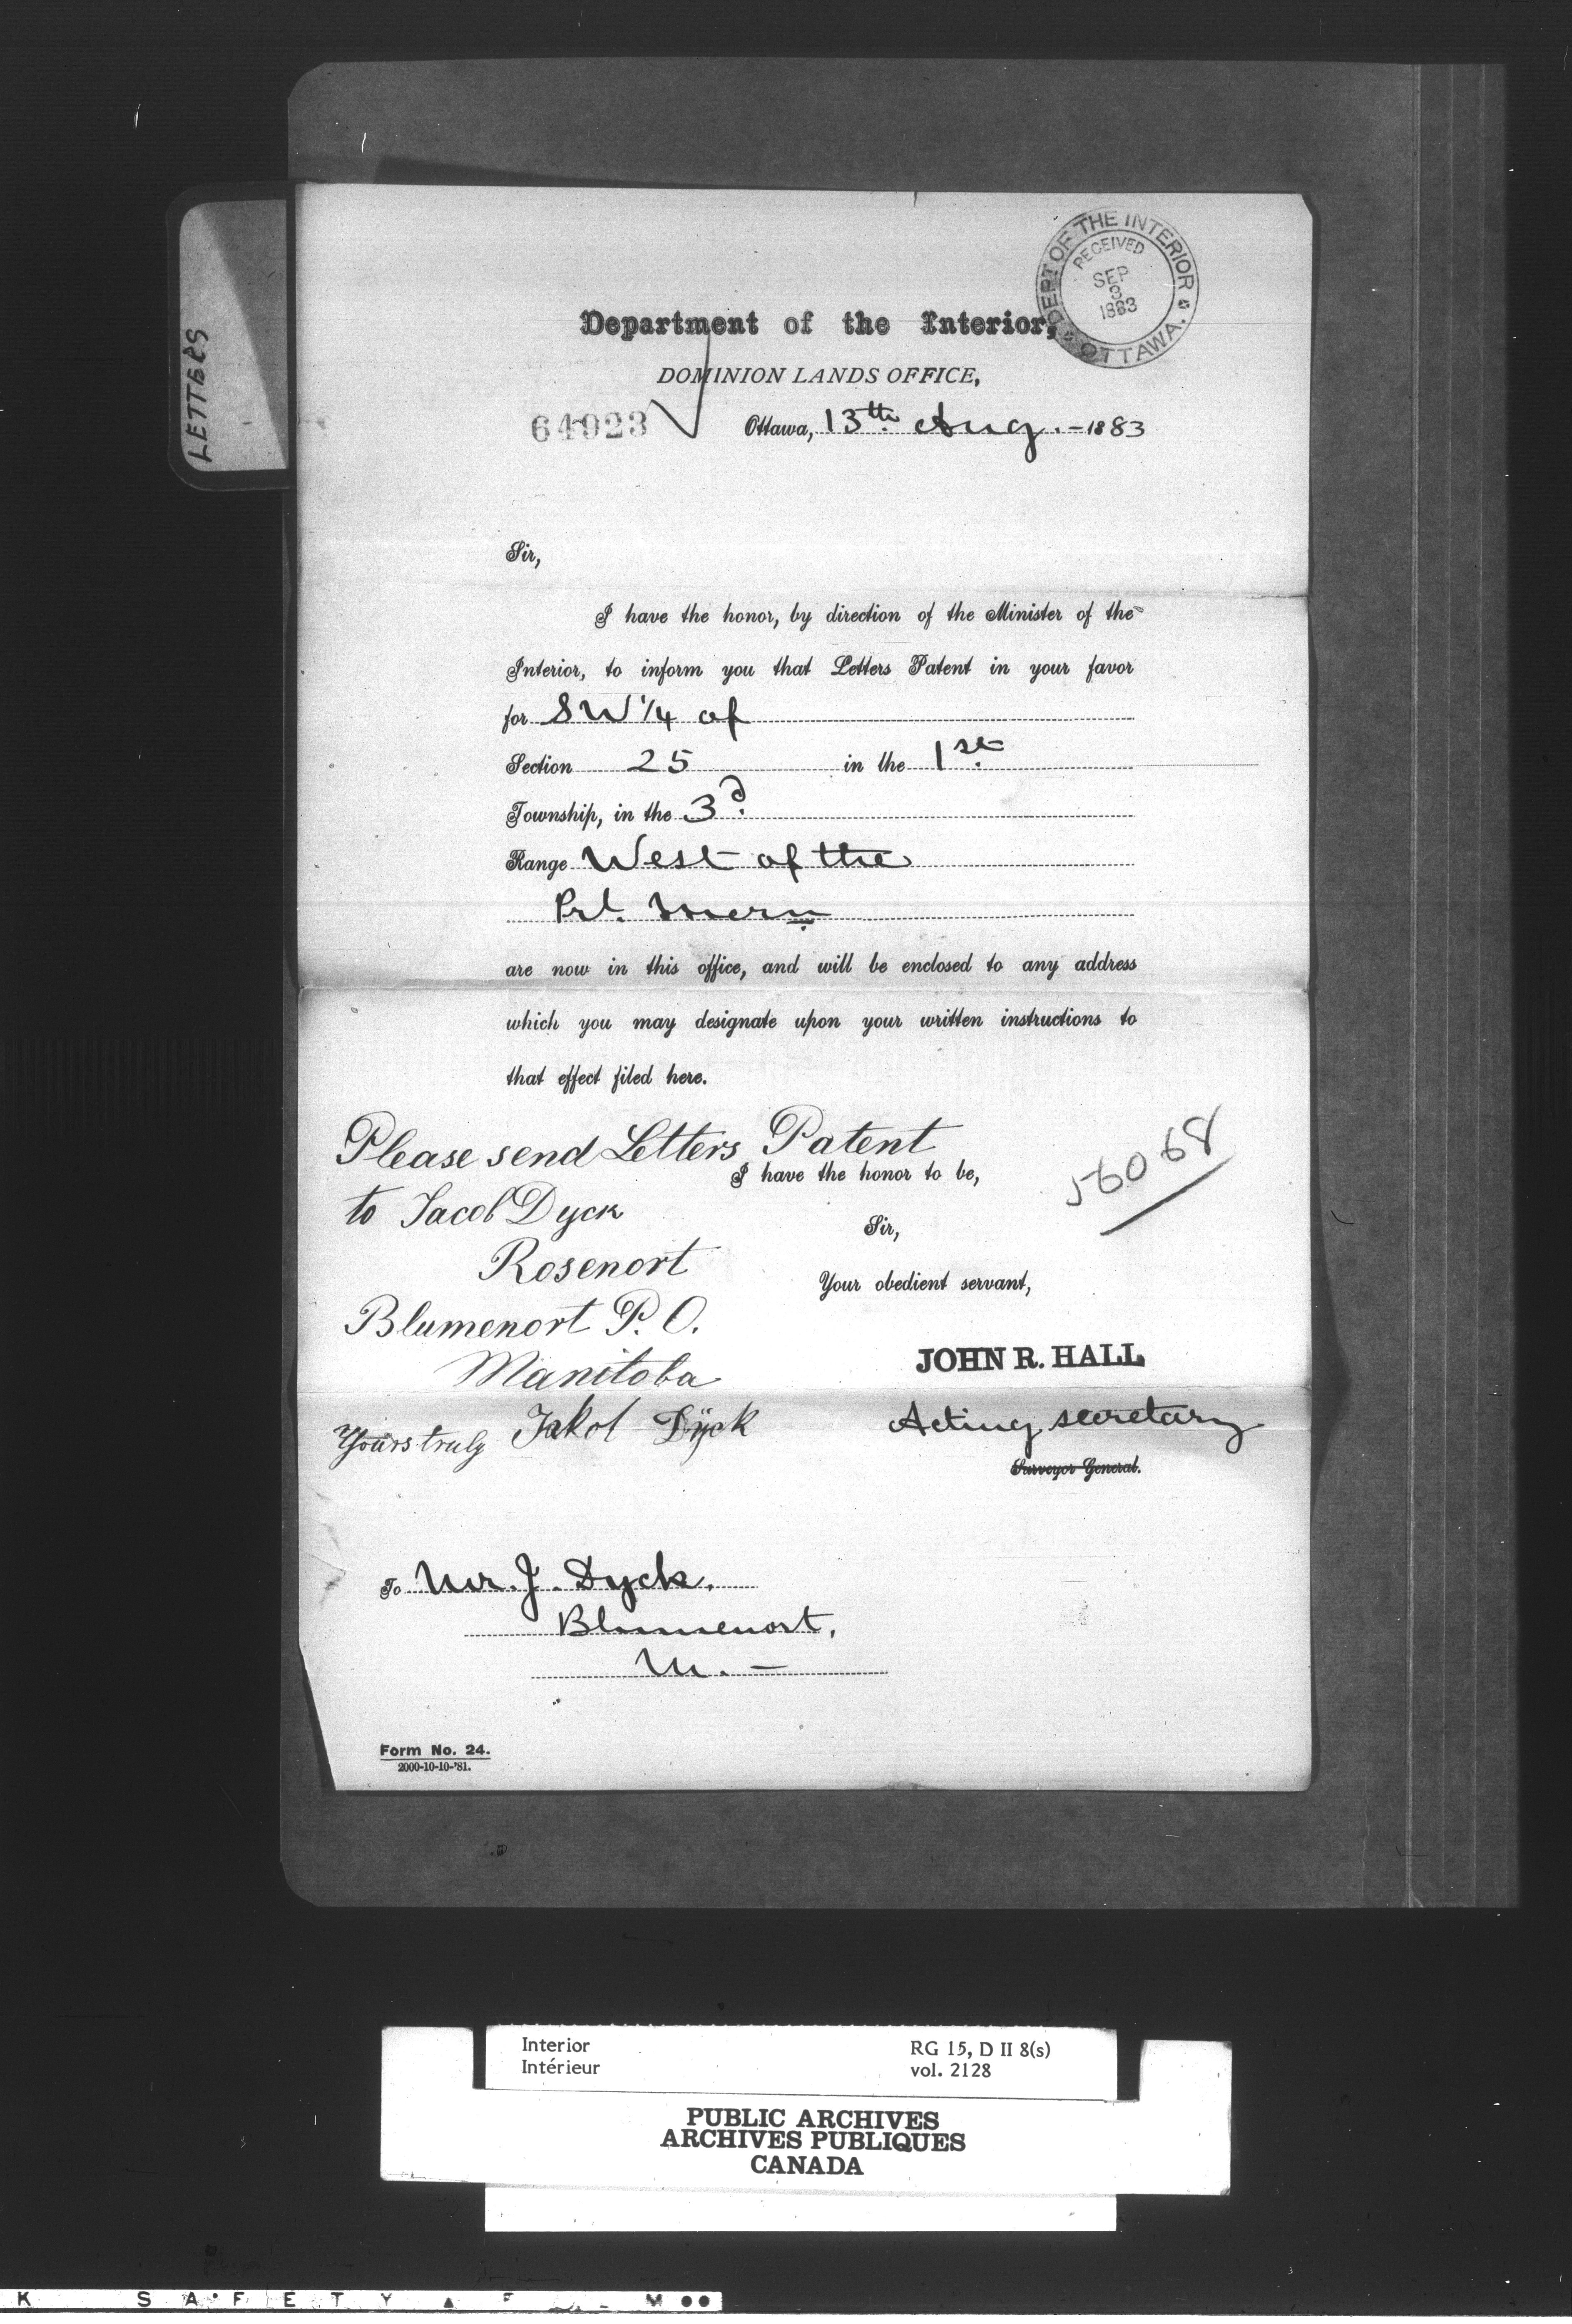 LETTERS
DEPT OF THE INTERIOR
RECEIVED
SEP
1883
OTTAWA.
Department of the Interior,
DOMINION LANDS OFFICE,
64923
Ottawa, 13th Aug. - 1883
Sir,
I have the honor, by direction of the Minister of the
Interior, to inform you that Letters Patent in your favor
for SW 1/4 of
Section 25 in the 1st
Township, in the 3d
Range West of the
Prl. Mern
are now in this office, and will be enclosed to any address
which you may designate upon your written instructions to
that effect filed here.
Please send Letters Patent
I have the honor to be,
to Jacob Dyck
Sir,
Rosenort
Your obedient servant,
Blumenort P. O.
JOHN R. HALL
Manitoba
Yours truly Jakob Dÿck
Acting secretary
Surveyor General.
58068
To Mr. J. Dyck.
Blumenort.
M. -
Form No. 24.
2000-10-10-'81.
Interior
Intérieur
RG 15, D II 8(s)
vol. 2128
PUBLIC ARCHIVES
ARCHIVES PUBLIQUES
CANADA
K SAFETY